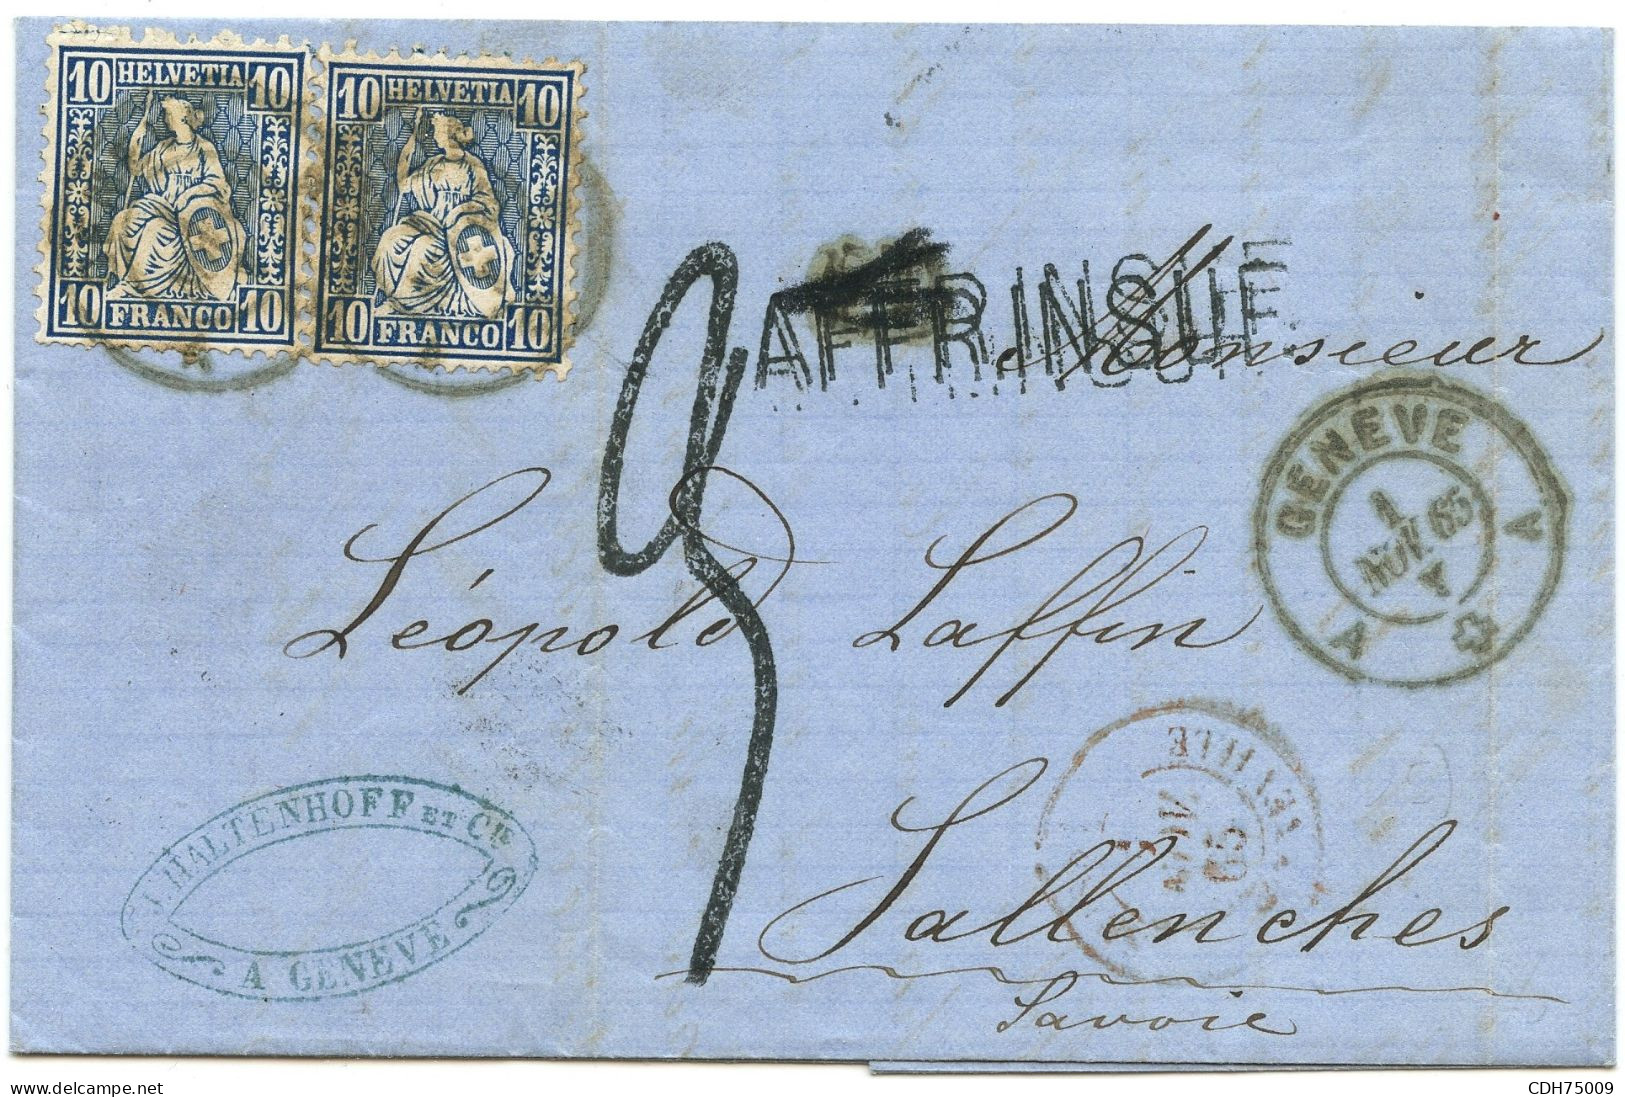 10 HELVETIA 10
10 FRANCO 10
10 HELVETIA 10
10 FRANCO 10
AFFR.INSUF.
Monsieur
Léopold Laffin
Sallenches
Savoie
GENÈVE
1
NOV. 65
4
A A
65
J. HALTENHOFF ET CIE
A GENÈVE
delcampe.net
CDH75009